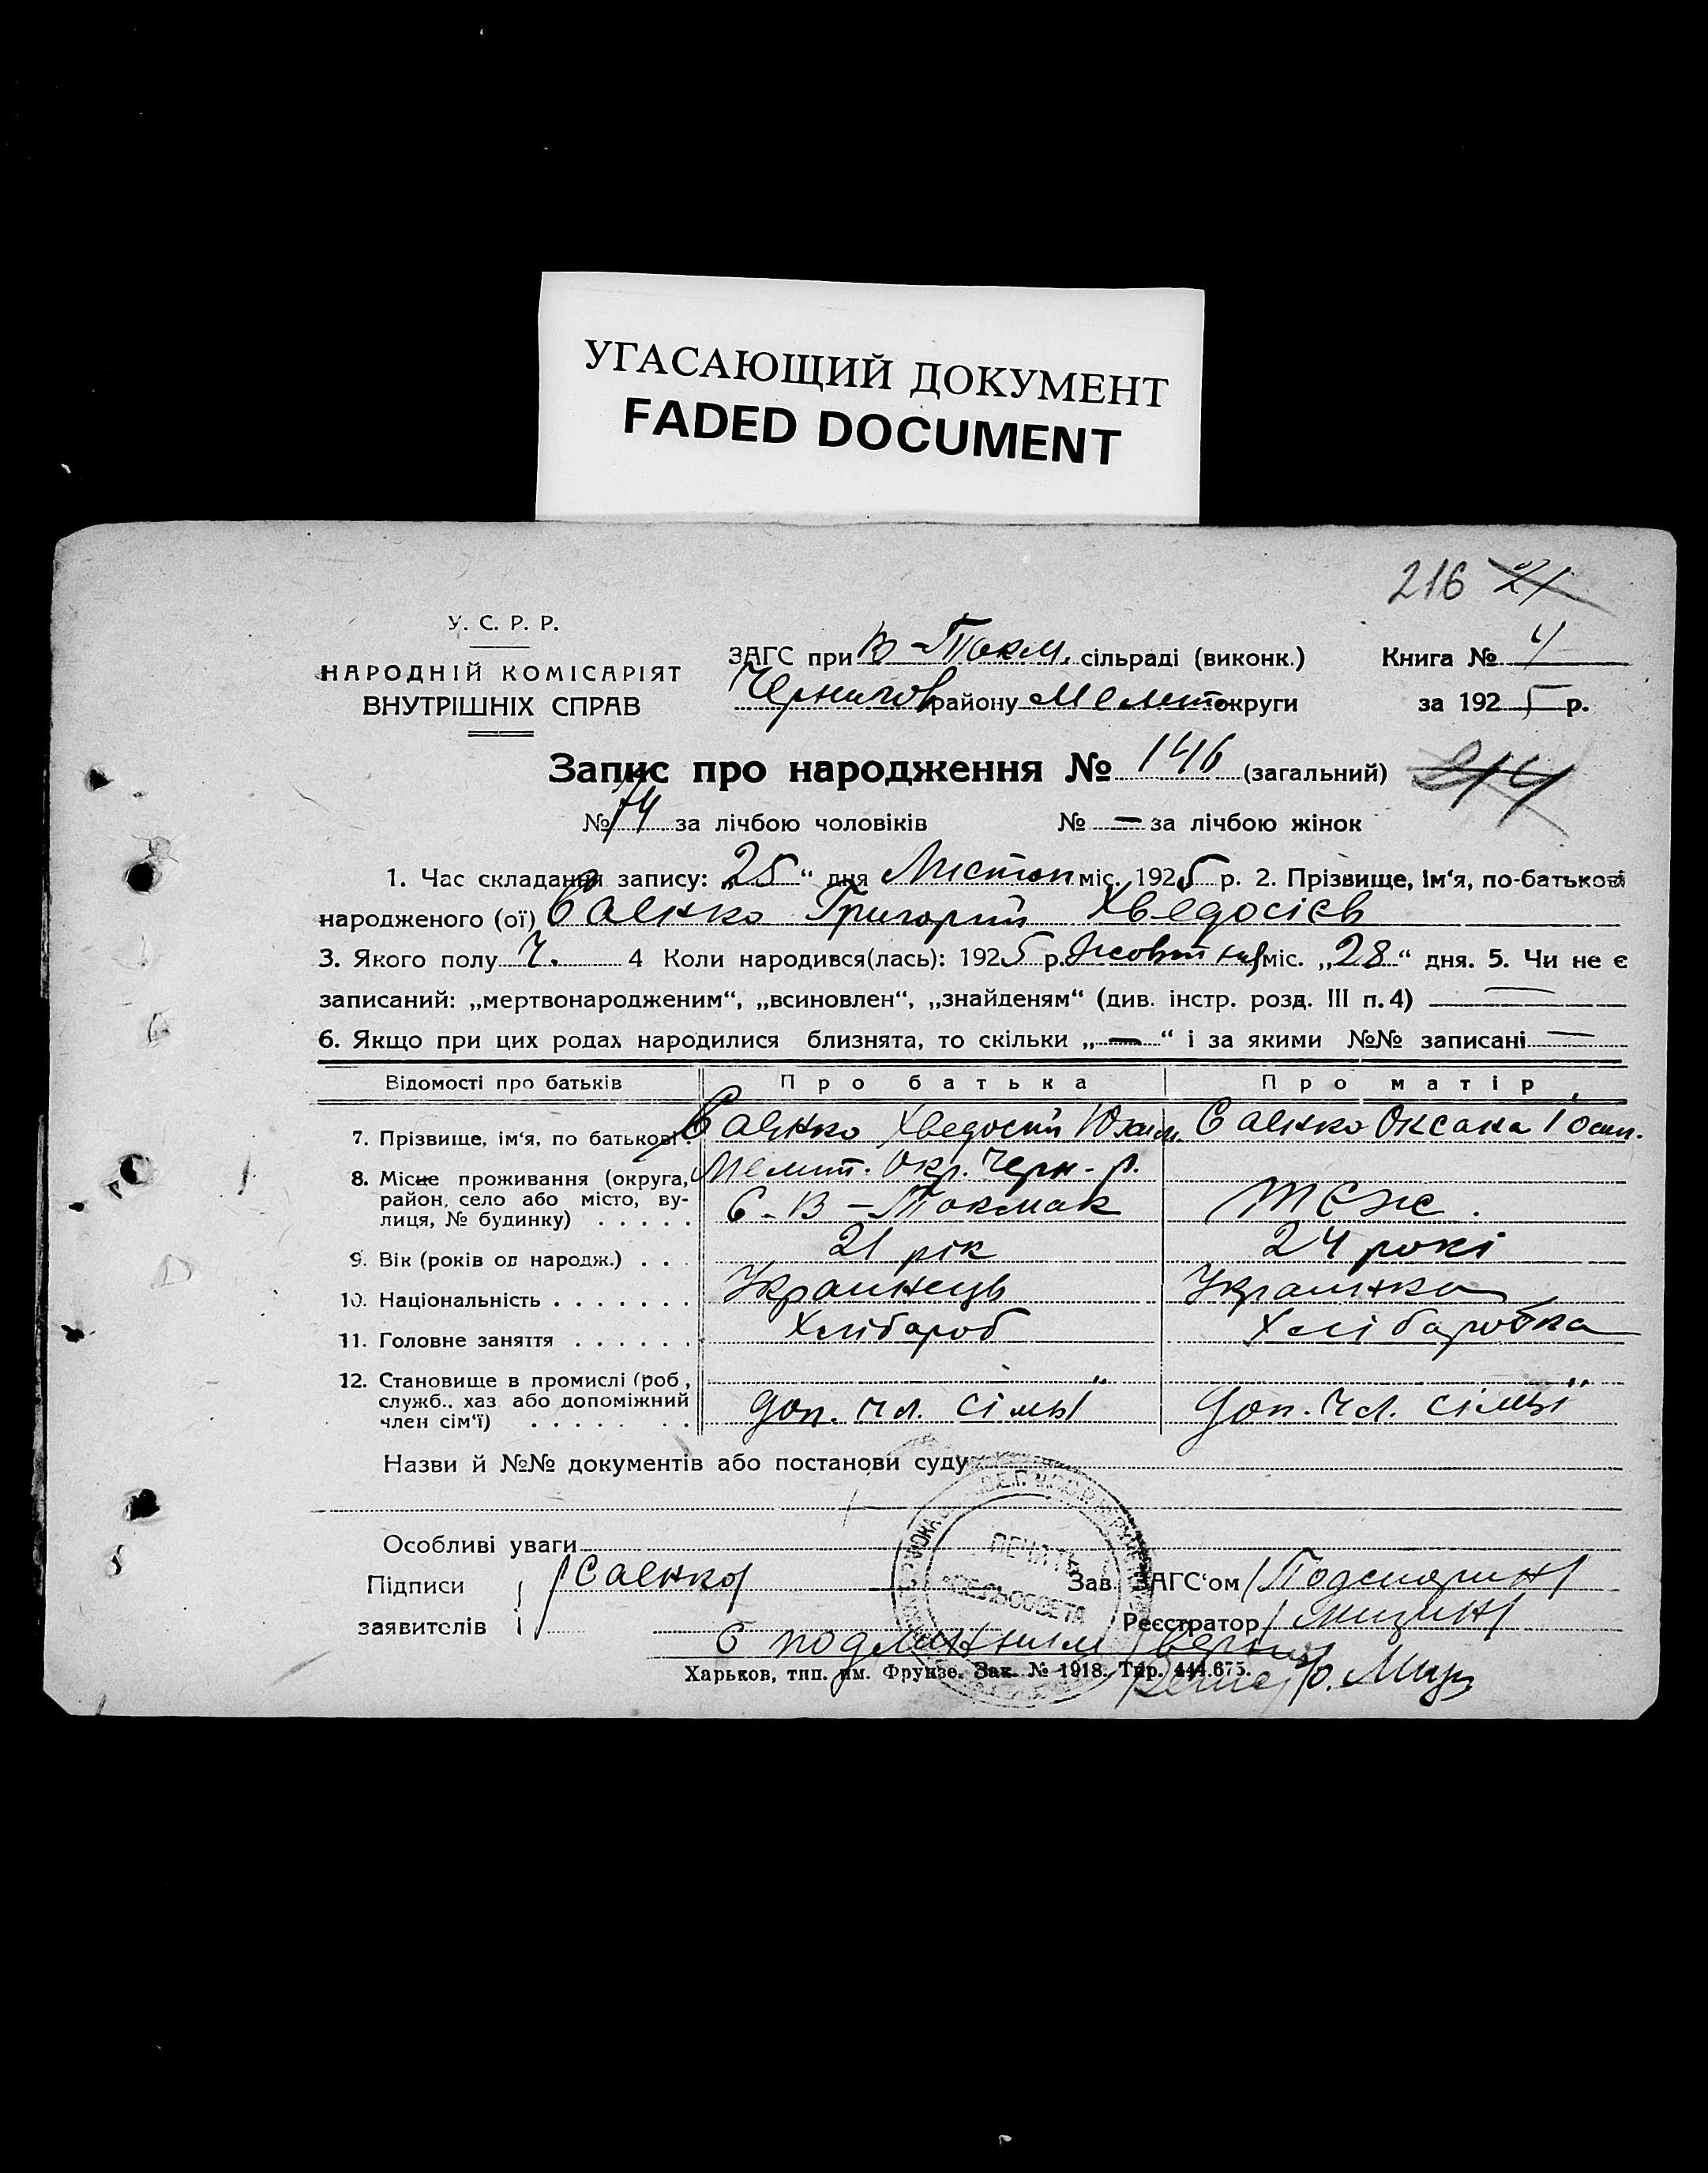 УГАСАЮЩИЙ ДОКУМЕНТ
FADED DOCUMENT
216 21
У. С. Р. Р.
НАРОДНІЙ КОМІСАРІЯТ
ВНУТРІШНІХ СПРАВ
ЗАГС при В-Токм. сільраді (виконк.)
Книга № 4
Чернигов району Мелит округи
за 1925 р.
Запис про народження № 146 (загальний) 214
№ 74 за лічбою чоловіків № — за лічбою жінок
1. Час складання запису: „25“ дня Листоп міс. 1925 р. 2. Прізвище, ім‘я, по-батькові
народженого (ої) Саенко Григорий Хведосієв
3. Якого полу Ч. 4 Коли народився(лась): 1925 р. Жовтня міс. „28“ дня. 5. Чи не є
записаний: „мертвонародженим“, „всиновлен“, „знайденям“ (див. інстр. розд. III п. 4) —
6. Якщо при цих родах народилися близнята, то скільки „—“ і за якими №№ записані —
Відомості про батьків Про батька Про матір
7. Прізвище, ім‘я, по батькові Саенко Хведосий Юхим. Саенко Оксана Іосип.
8. Місце проживання (округа, Мелит. Окр. Черн. р.
район, село або місто, ву- С. В-Токмак Теж.
лиця, № будинку) . . . . .
9. Вік (років од народж.) . . . 21 рік 24 рокі
10. Національність . . . . . . . Украинець Украинка
11. Головне заняття . . . . . . Хлібароб Хлібаробка
12. Становище в промислі (роб.,
служб.. хаз або допоміжний доп. чл. сімьї доп. чл. сімьї
член сім‘ї) . . . . . . .
Назви й №№ документів або постанови суду
Особливі уваги
Підписи Саенко Зав. ЗАГС‘ом
заявителів Реєстратор
ПЕЧАТЬ
СЕЛЬСОВЕТА
С подлинным верно
Харьков, тип. им. Фрунзе. Зак. № 1918. Тир. 444.675.